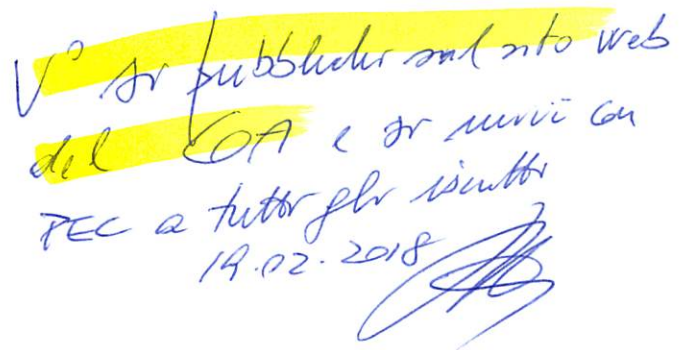 V° si pubblichi sul sito web
del COA e si invii con
PEC a tutti gli iscritti
19.02.2018